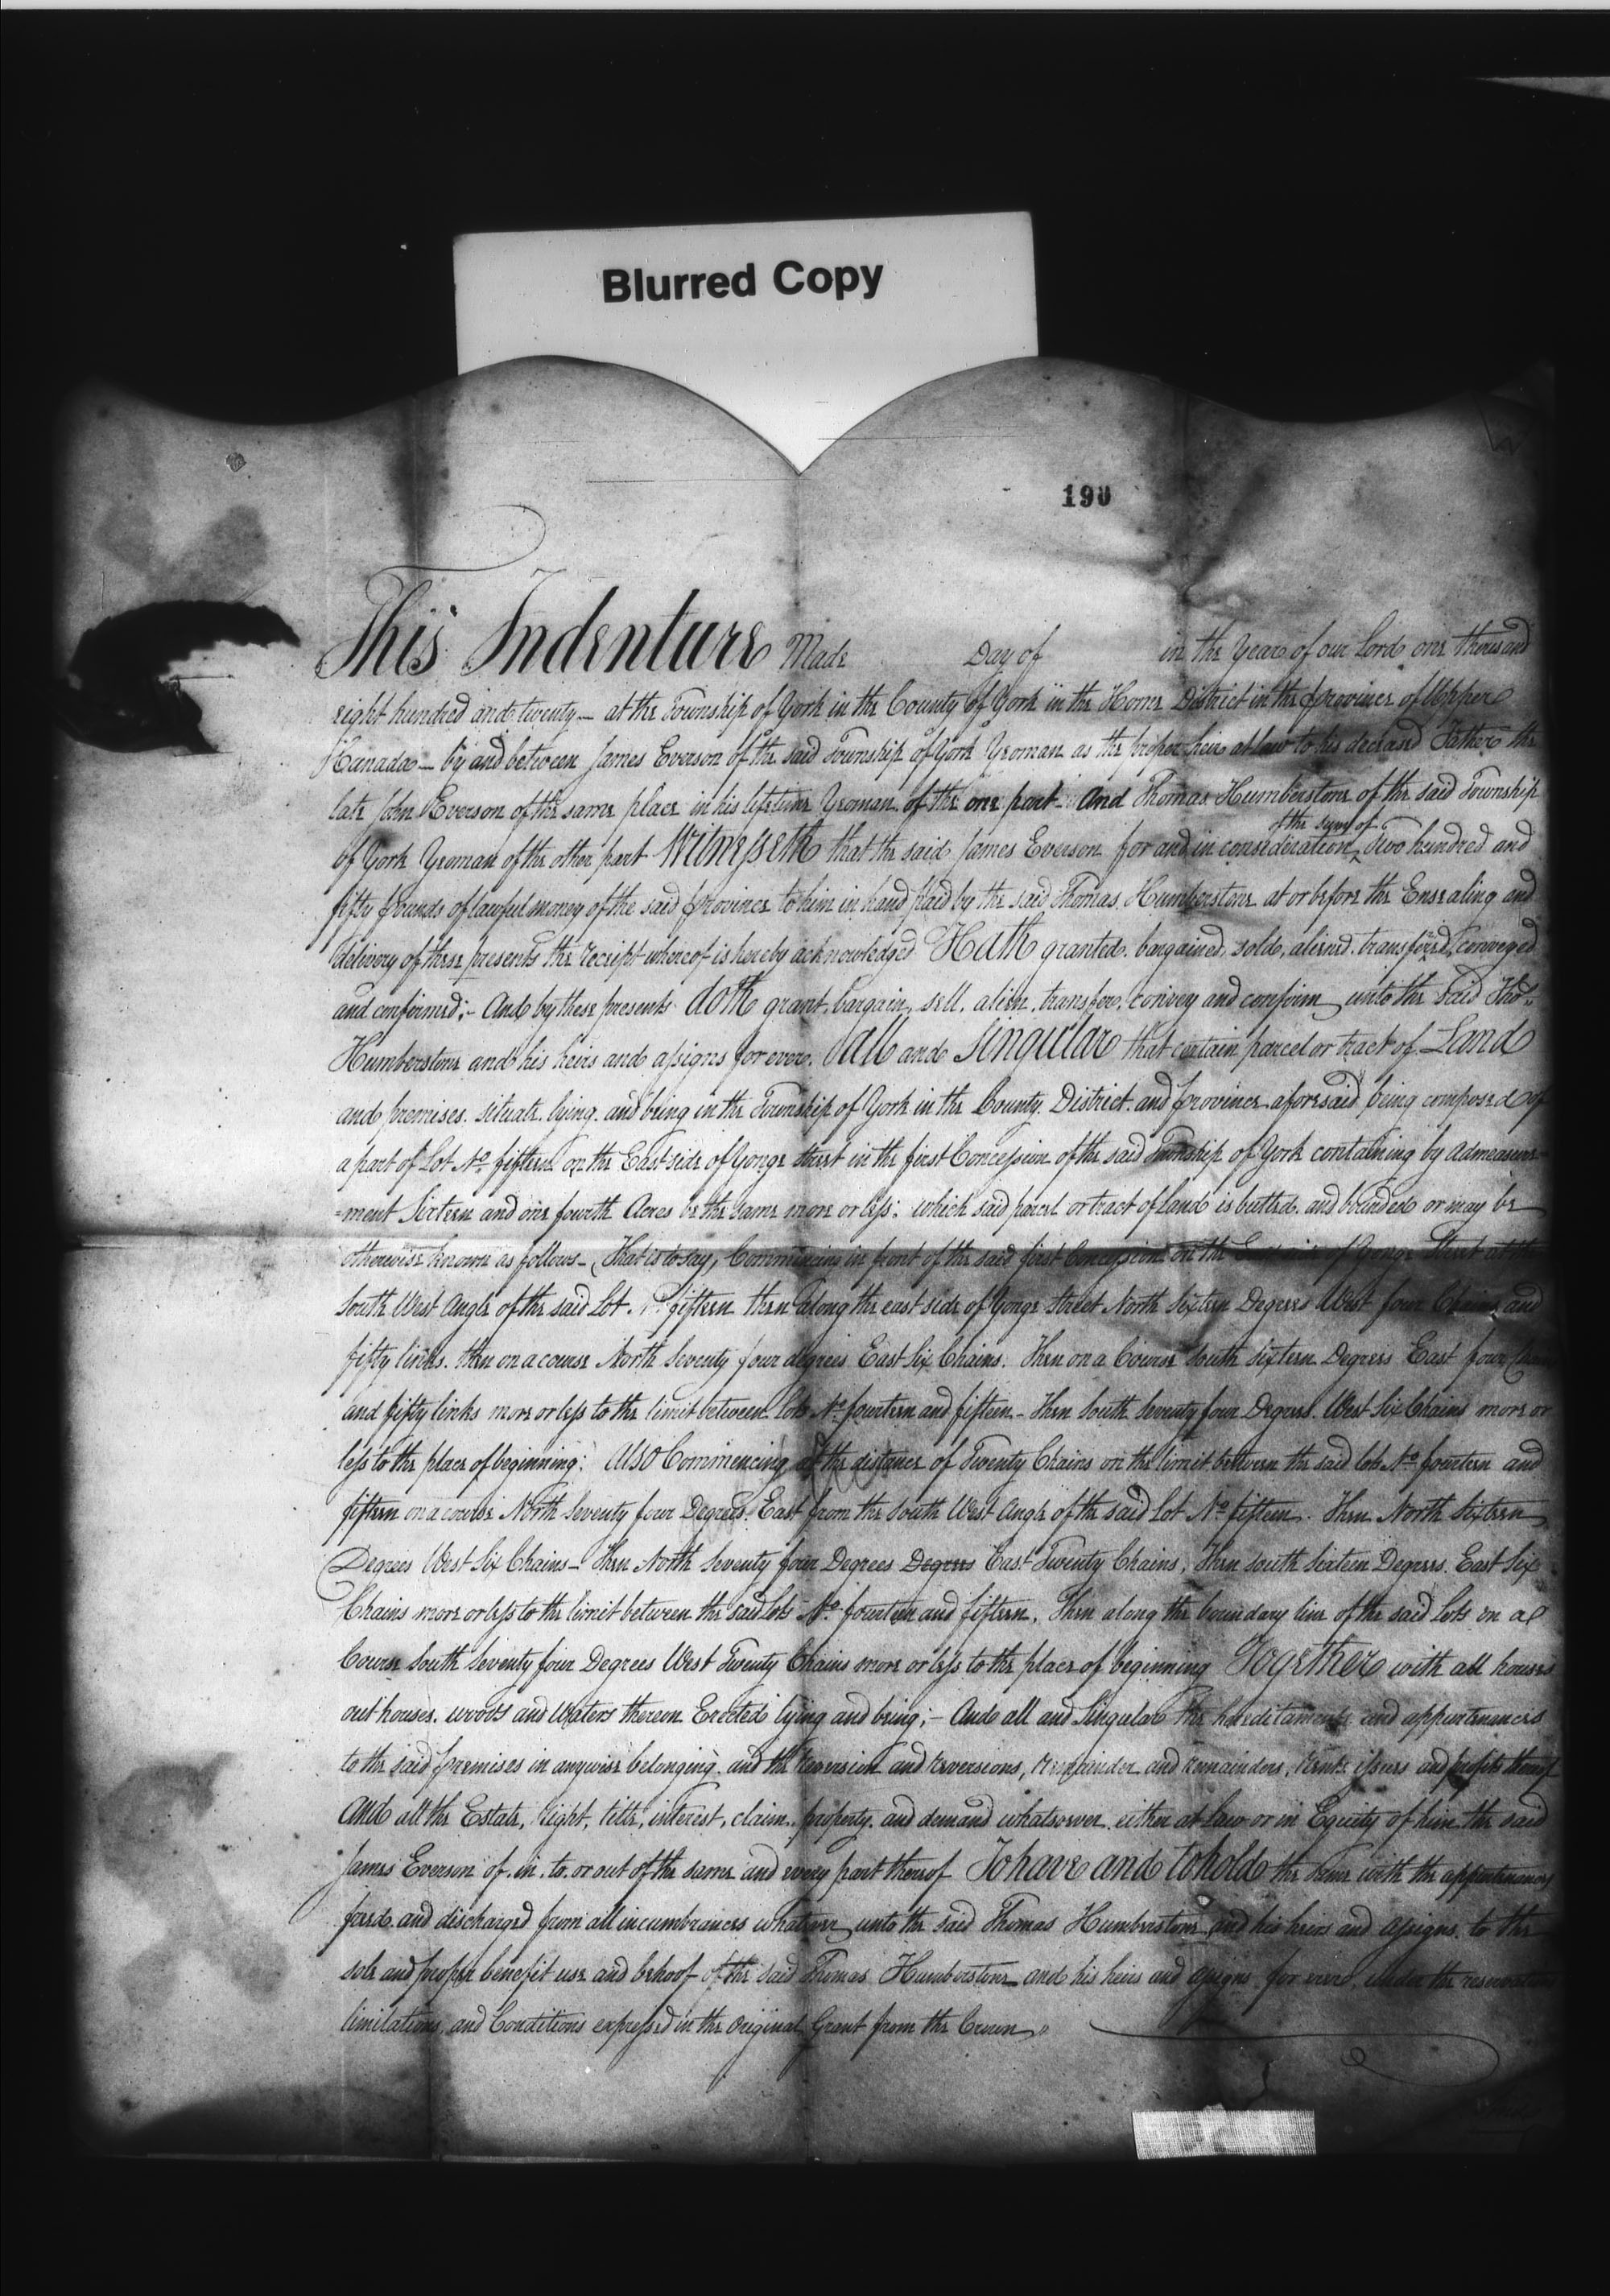 Blurred Copy
190
This Indenture Made Day of in the Year of our Lord one thousand
eight hundred and twenty — at the Township of York in the County of York in the Home District in the Province of Upper
Canada — by and between James Everson of the said Township of York Yeoman as the proper heir at law to his deceased Father the
late John Everson of the same place in his lifetime Yeoman of the one part — And Thomas Humberstone of the said Township
of the sum of
of York Yeoman of the other part Witnesseth that the said James Everson for and in consideration Two hundred and
fifty pounds of lawful money of the said Province to him in hand paid by the said Thomas Humberstone at or before the Ensealing and
delivery of these presents the receipt whereof is hereby acknowledged Hath granted. bargained, sold, aliened. transfered, conveyed
and confirmed;- And by these presents doth grant, bargain, sell, alien, transfer, convey and confirm unto the said Thos.
Humberstone and his heirs and assigns for ever. all and singular that certain parcel or tract of Land
and premises. situate. lying. and being in the Township of York in the County. District. and Province aforesaid being composed of
a part of Lot No. fifteen on the East side of Yonge street in the first Concession of the said Township of York containing by admeasure-
=ment Sixteen and one fourth Acres be the same more or less: which said parcel or tract of Land is butted. and bounded or may be
otherwise known as follows — (That is to say, Commencing in front of the said first Concession on the of Yonge Street at the
South West Angle of the said Lot. No. fifteen then along the east side of Yonge Street North Sixteen Degrees West four Chains and
fifty links. then on a course North Seventy four degrees East Six Chains. Then on a Course South sixteen Degrees East four
and fifty links more or less to the limit between Lots No. fourteen and fifteen - Then South Seventy four Degrees. West Six Chains more or
less to the place of beginning: Also Commencing at the distance of Twenty Chains on the limit between the said lots No. fourteen and
fifteen on a course North Seventy four Degrees. East from the South West Angle of the said Lot No. fifteen. Then North Sixteen
Degrees West Six Chains — Then North Seventy four Degrees Degrees East Twenty Chains, Then south sixteen Degrees. East Six
Chains more or less to the limit between the said Lots No. fourteen and fifteen, Then along the boundary line of the said Lots on a
Course South Seventy four Degrees West Twenty Chains more or less to the place of beginning Together with all houses
out houses. woods and Waters thereon Erected lying and being;- And all and Singular the hereditaments and appurtenances
to the said premises in anywise belonging. and the Reversion and reversions, remainder and remainders, rents issues and profits thereof
And all the Estate, right, title, interest, claim, property. and demand whatsoever. either at law or in Equity of him the said
James Everson of. in. to. or out of the same and every part thereof To have and to hold the same with the appurtenances
freed and discharged from all incumbrances whatever unto the said Thomas Humberstone and his heirs and assigns. to the
sole and proper benefit use and behoof of the said Thomas Humberstone and his heirs and assigns for ever. under the reservations
limitations, and Conditions expressed in the original Grant from the Crown